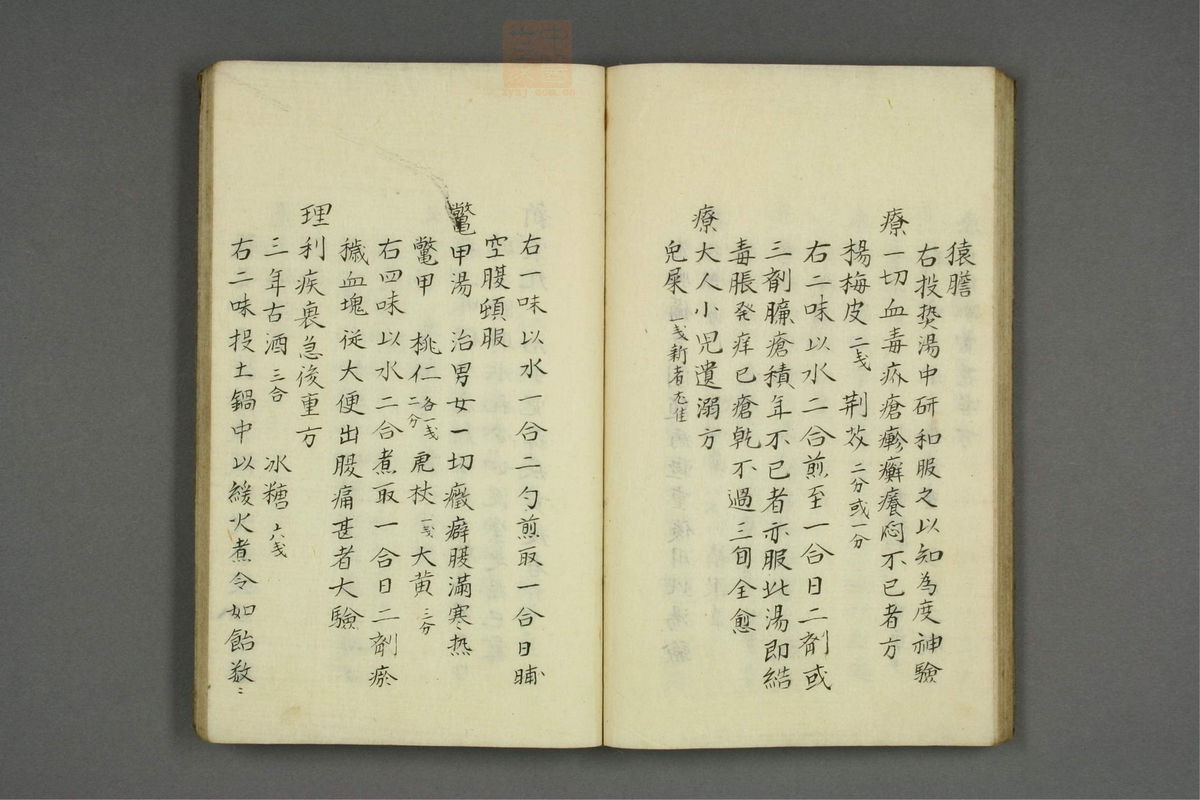 猿膽
右投㷫湯中研和服之以知為度神驗
療一切血毒疥瘡瘮癬癢悶不已者方
楊梅皮二戔 荆芥二分或一分
右二味以水二合煎至一合日二劑或
三劑臁瘡積年不已者亦服此湯即結
毒脹発痒已瘡乾不過三旬全愈
療大人小児遺溺方
兒屎一戔新者尤佳
右一味以水一合二勺煎取一合日晡
空腹頓服
鼈甲湯 治男女一切癥癖腹滿寒热
鼈甲 桃仁各一戔二分 虎杖一戔 大黄三分
右四味以水二合煮取一合日二劑瘀
穢血塊従大便出腹痛甚者大驗
理利疾裏急後重方
三年古酒三合 冰糖六戔
右二味投土鍋中以緩火煮令如飴